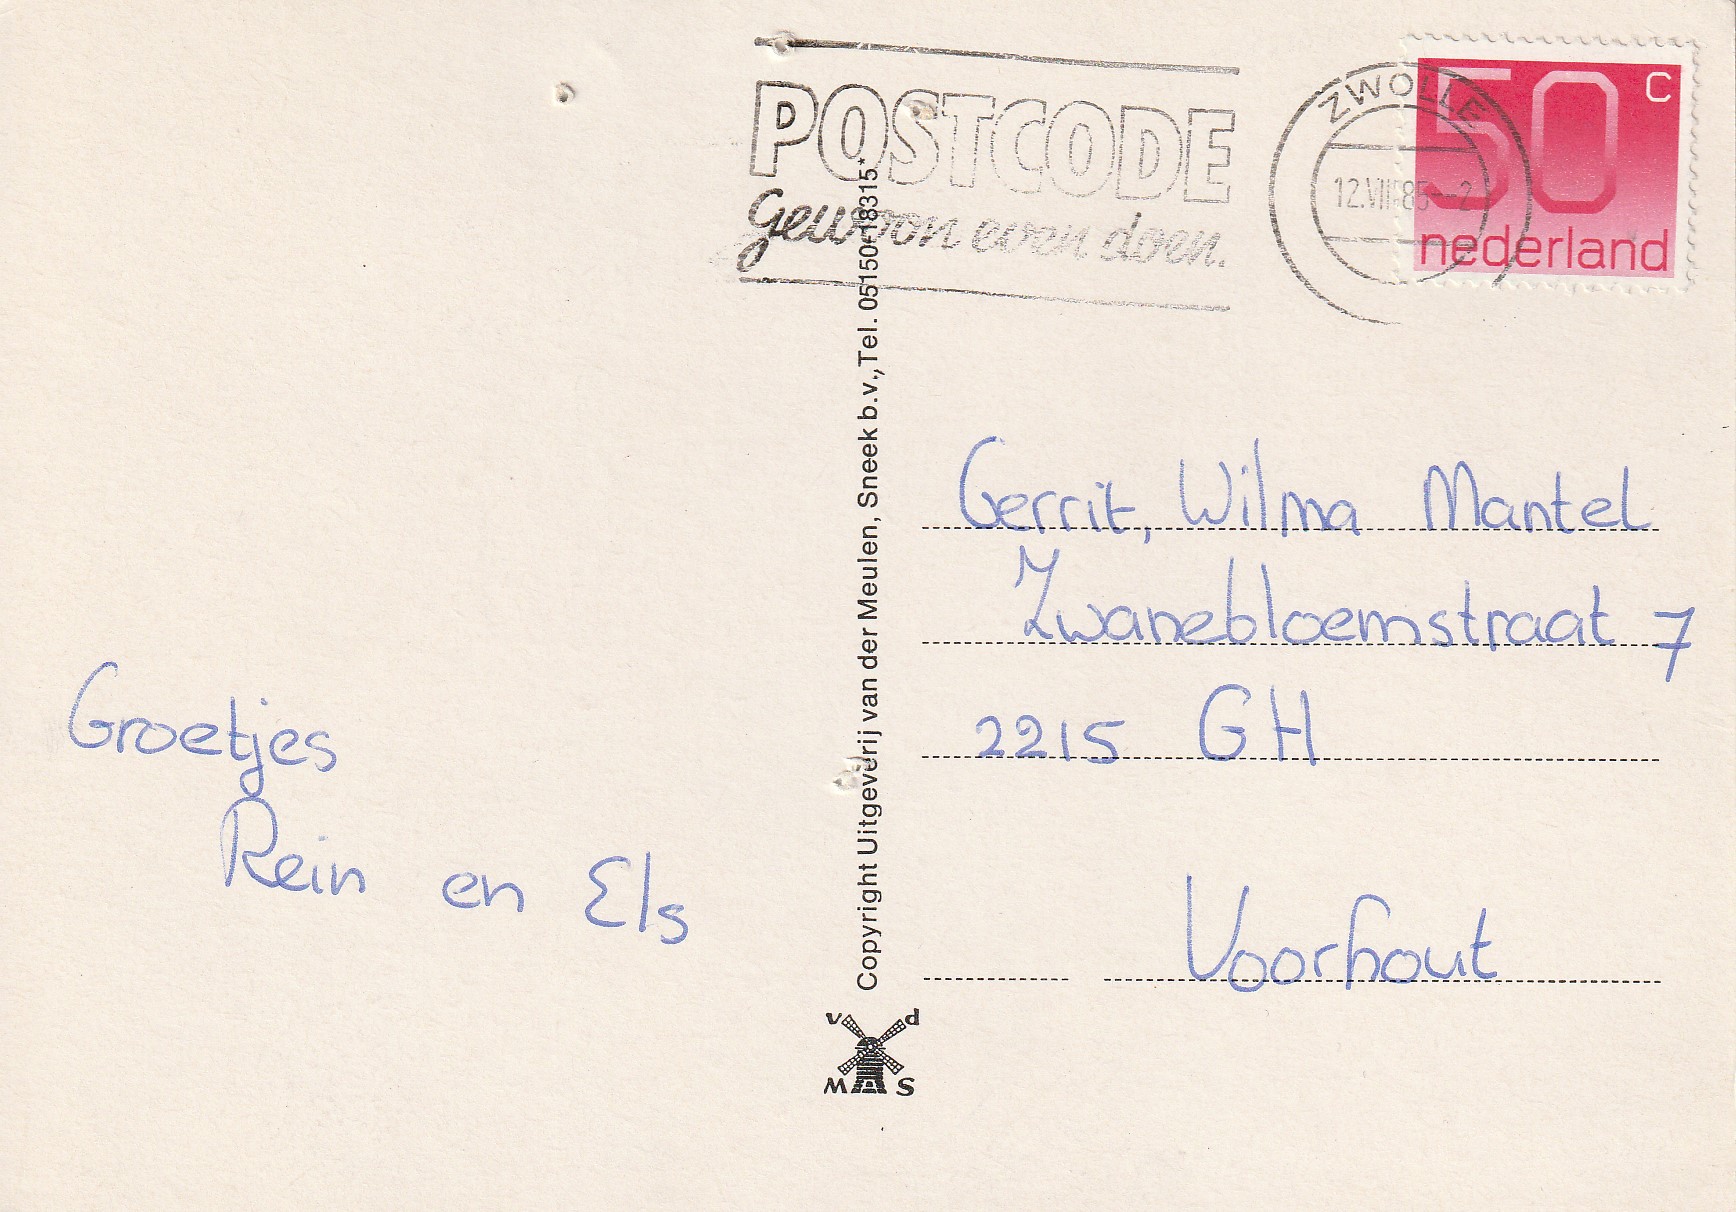 POSTCODE
gewoon even doen.
ZWOLLE
50 c
nederland
Copyright Uitgeverij van der Meulen, Sneek b.v., Tel. 05150-18315*
Groetjes
Rein en Els
Gerrit, Wilma Mantel
Zwanebloemstraat 7
2215 GH
Voorhout
v d
M S